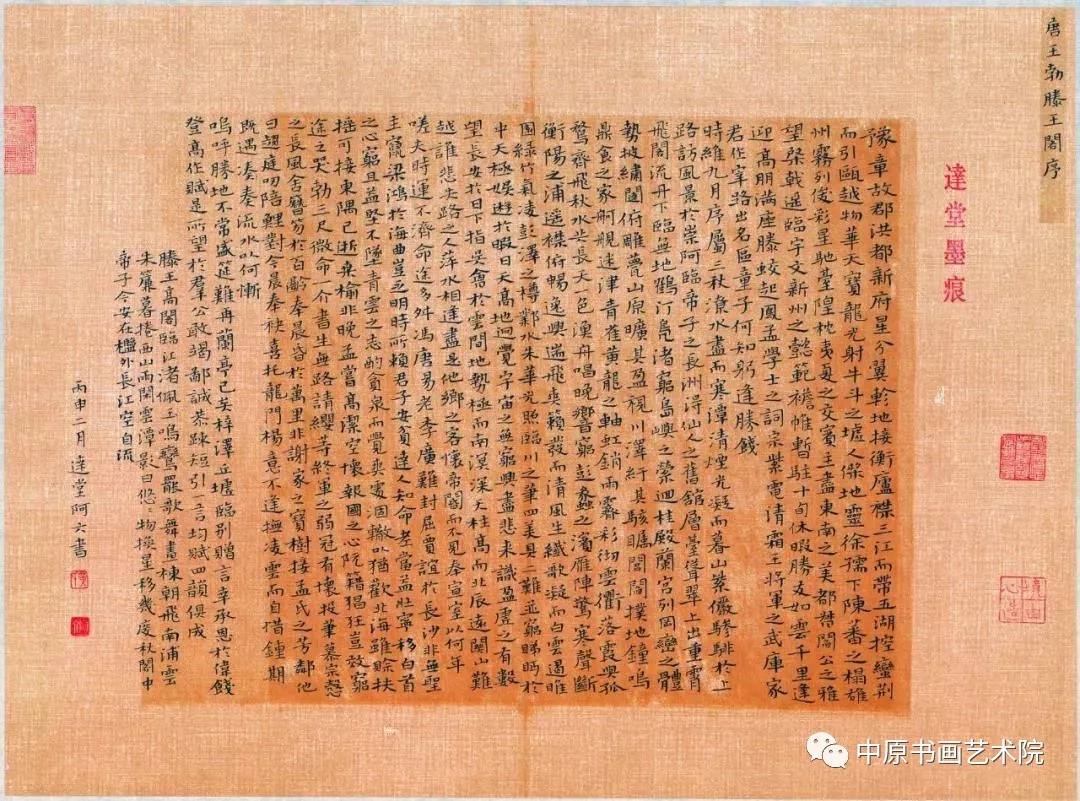 唐王勃滕王閣序
達堂墨痕
豫章故郡洪都新府星分翼軫地接衡廬襟三江而帶五湖控蠻荊
而引甌越物華天寶龍光射牛斗之墟人傑地靈徐孺下陳蕃之榻雄
州霧列俊彩星馳臺隍枕夷夏之交賓主盡東南之美都督閻公之雅
望棨戟遥臨宇文新州之懿範襜帷暫駐十旬休暇勝友如雲千里逢
迎高朋滿座滕蛟起鳳孟學士之詞宗紫電清霜王將軍之武庫家
君作宰路出名區童子何知躬逢勝餞
時維九月序屬三秋潦水盡而寒潭清煙光凝而暮山紫儼驂騑於上
路訪風景於崇阿臨帝子之長洲得仙人之舊館層臺聳翠上出重霄
飛閣流丹下臨無地鶴汀鳧渚窮島嶼之縈迴桂殿蘭宮列岡巒之體
勢披繡闥俯雕甍山原曠其盈視川澤紆其駭矚閭閻撲地鐘鳴
鼎食之家舸艦迷津青雀黃龍之軸虹銷雨霽彩徹雲衢落霞與孤
鶩齊飛秋水共長天一色漁舟唱晚響窮彭蠡之濱雁陣驚寒聲斷
衡陽之浦遥襟俯暢逸興遄飛爽籟發而清風生纖歌凝而白雲遏睢
園綠竹氣凌彭澤之樽鄴水朱華光照臨川之筆四美具二難並窮睇眄於
中天極娛遊於暇日天高地迥覺宇宙之無窮興盡悲來識盈虛之有數
望長安於日下指吳會於雲間地勢極而南溟深天柱高而北辰遠關山難
越誰悲失路之人萍水相逢盡是他鄉之客懷帝閽而不見奉宣室以何年
嗟夫時運不濟命途多舛馮唐易老李廣難封屈賈誼於長沙非無聖
主竄梁鴻於海曲豈乏明時所賴君子安貧達人知命老當益壯寧移白首
之心窮且益堅不墜青雲之志酌貪泉而覺爽處涸轍以猶歡北海雖賒扶
搖可接東隅已逝桑榆非晚孟嘗高潔空懷報國之心阮籍猖狂豈效窮
途之哭勃三尺微命一介書生無路請纓等終軍之弱冠有懷投筆慕宗愨
之長風舍簪笏於百齡奉晨昏於萬里非謝家之寶樹接孟氏之芳鄰他
日趨庭叨陪鯉對今晨奉袂喜托龍門楊意不逢撫凌雲而自惜鍾期
既遇奏流水以何慚
嗚呼勝地不常盛筵難再蘭亭已矣梓澤丘墟臨別贈言幸承恩於偉餞
登高作賦是所望於群公敢竭鄙誠恭疎短引一言均賦四韻俱成
滕王高閣臨江渚佩玉鳴鸞罷歌舞畫棟朝飛南浦雲
朱簾暮捲西山雨閑雲潭影日悠〻物換星移幾度秋閣中
帝子今安在檻外長江空自流
丙申二月達堂阿六書
中原书画艺术院